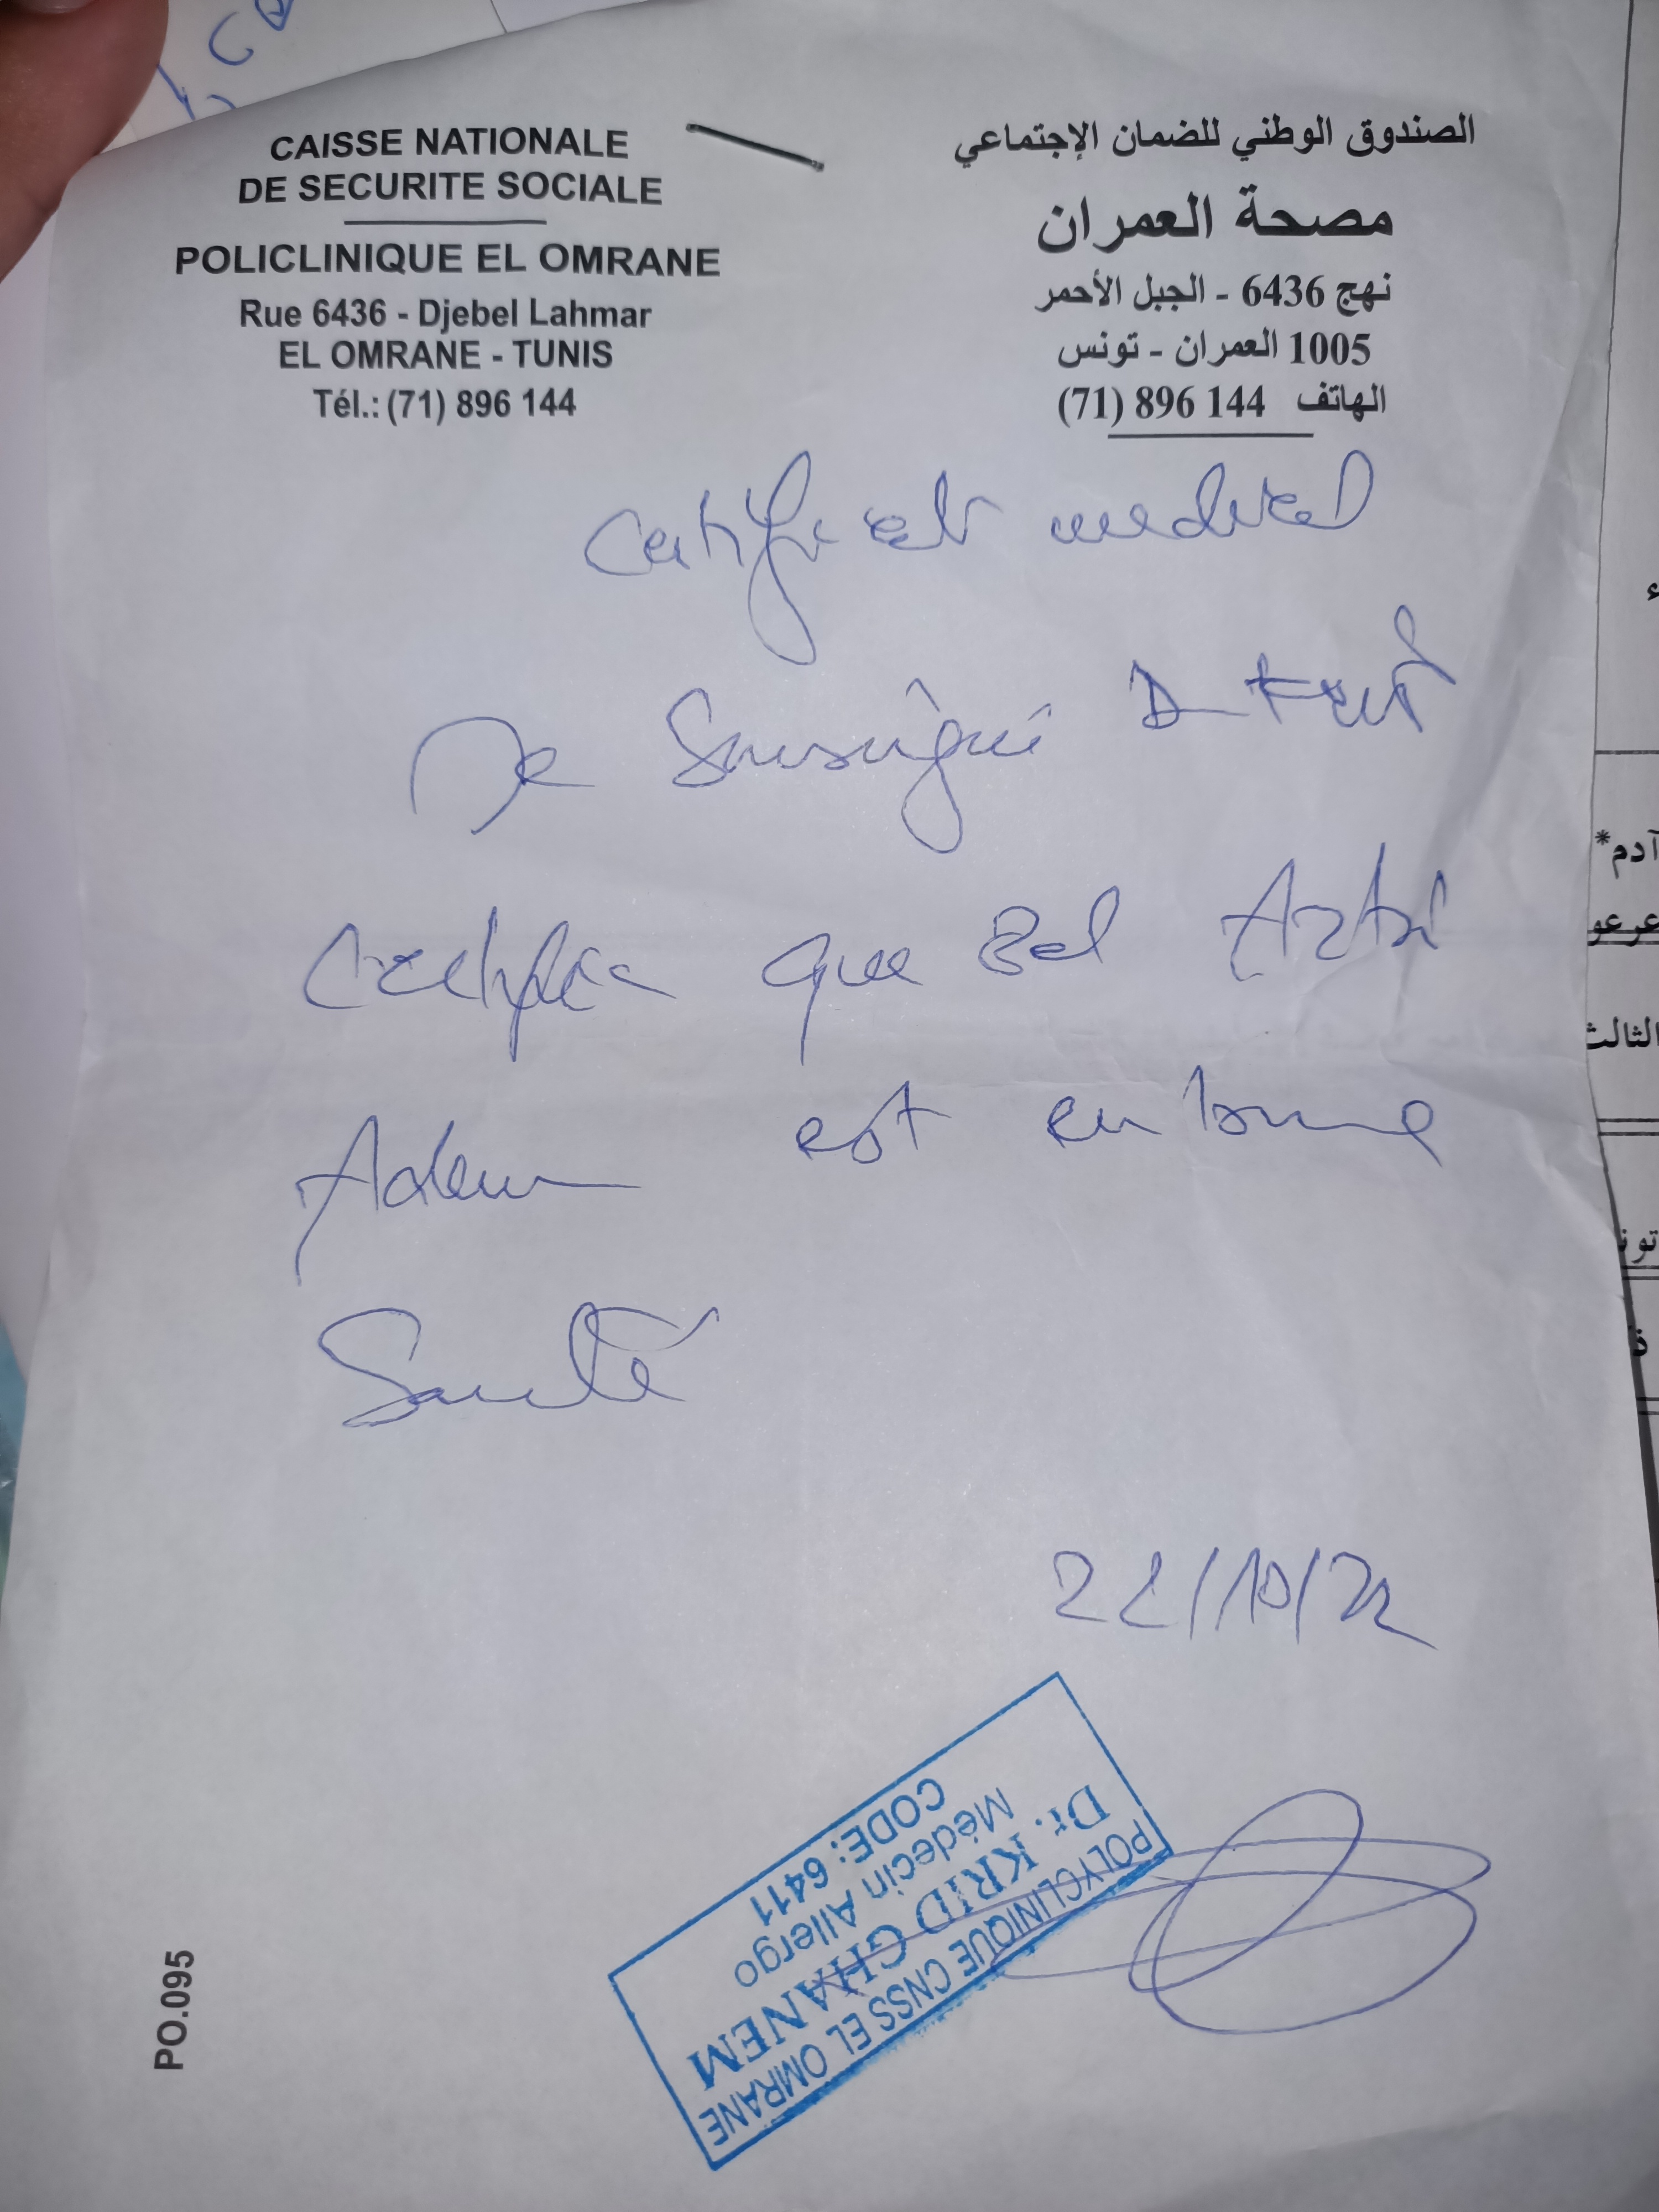 CAISSE NATIONALE
DE SECURITE SOCIALE
POLICLINIQUE EL OMRANE
Rue 6436 - Djebel Lahmar
EL OMRANE - TUNIS
Tél.: (71) 896 144
الصندوق الوطني للضمان الإجتماعي
مصحة العمران
نهج 6436 - الجبل الأحمر
1005 العمران - تونس
الهاتف 144 896 (71)
Certificat medical
Je Soussigné Dr
certifie que Bel
Adem est en bonne
Santé
22/10/22
POLYCLINIQUE CNSS EL OMRANE
Dr. KRID GHANEM
Médecin Allergo
CODE: 6411
PO.095
آدم*
الثالث